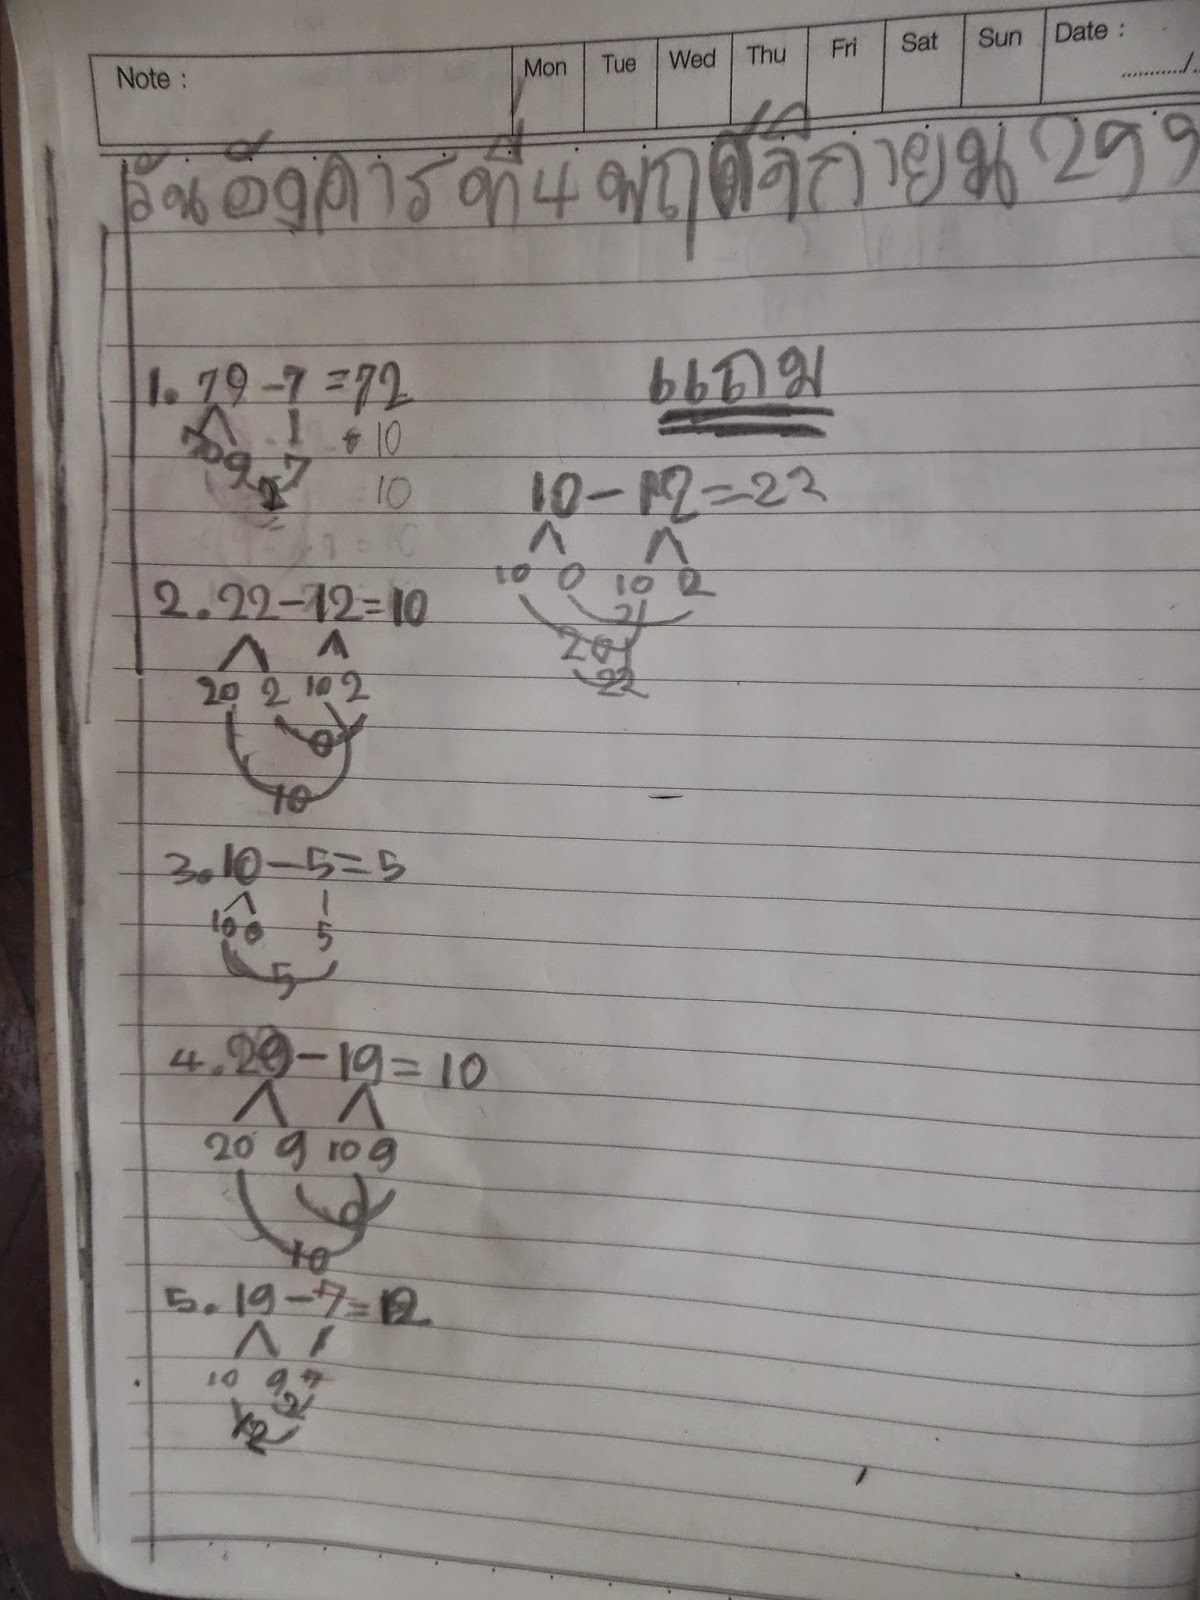 Note : Mon Tue Wed Thu Fri Sat Sun Date :
........../..
วันอังคารที่ 4 พฤศจิกายน 299
1. 79 - 7 = 72
70 9 7 + 10
2 10
2. 22 - 12 = 10
20 2 10 2
0
10
3. 10 - 5 = 5
10 0 5
5
4. 29 - 19 = 10
20 9 10 9
0
10
5. 19 - 7 = 12
10 9 7
2
12
แถม
10 - 12 = 22
10 0 10 2
2
20
22